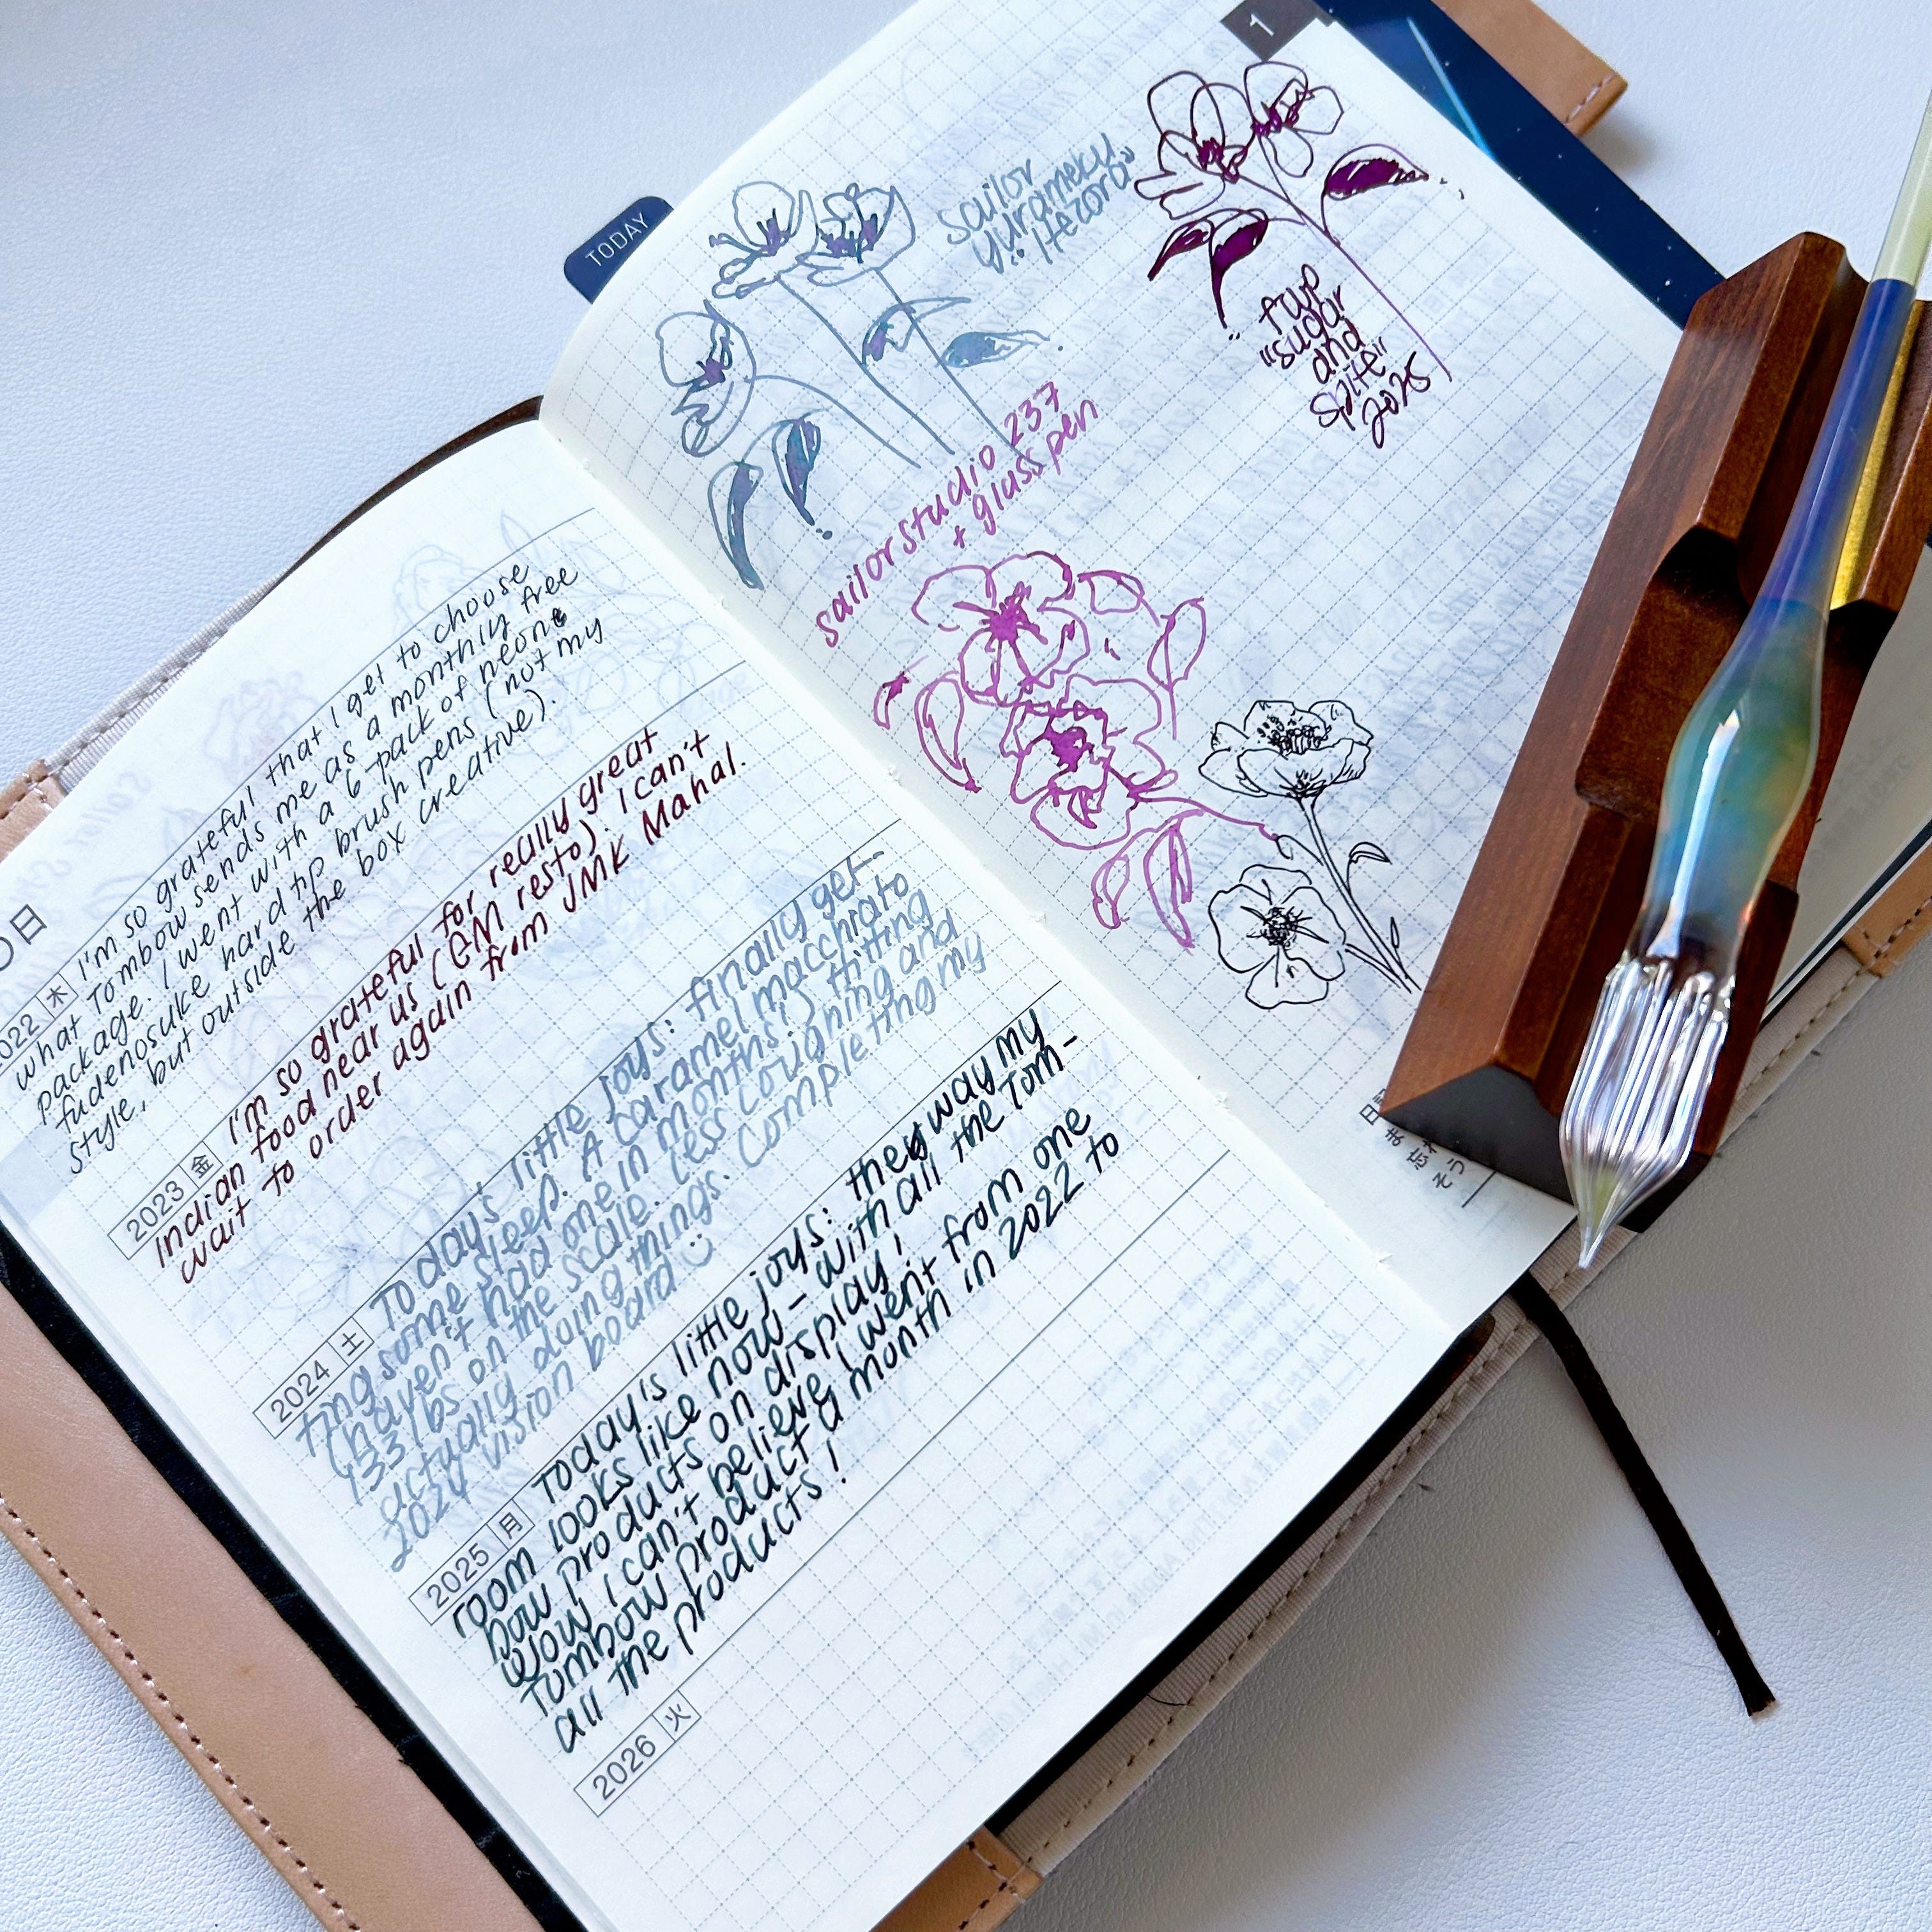 〇日
2022 木 I'm so grateful that I get to choose
what Tombow sends me as a monthly free
package. I went with a 6-pack of neon
fudenosuke hard tip brush pens (not my
style, but outside the box creative).
2023 金 I'm so grateful for really great
Indian food near us (EGM resto). I can't
wait to order again from JMK Mahal.
2024 土 Today's little joys: finally get-
ting some sleep. A caramel macchiato
(haven't had one in months!) hitting
433 lbs on the scale. Less coughing and
actually doing things. Completing my
2024 vision board
2025 月 Today's little joys: the way my
room looks like now – with all the Tom-
bow products on display!
Wow, I can't believe I went from one
Tombow product a month in 2022 to
all the products!
2026 火
TODAY
1
sailor
yurameku
"Itezora"
fwp
"sugar
and
spite"
2025
sailor studio 237
+ glass pen